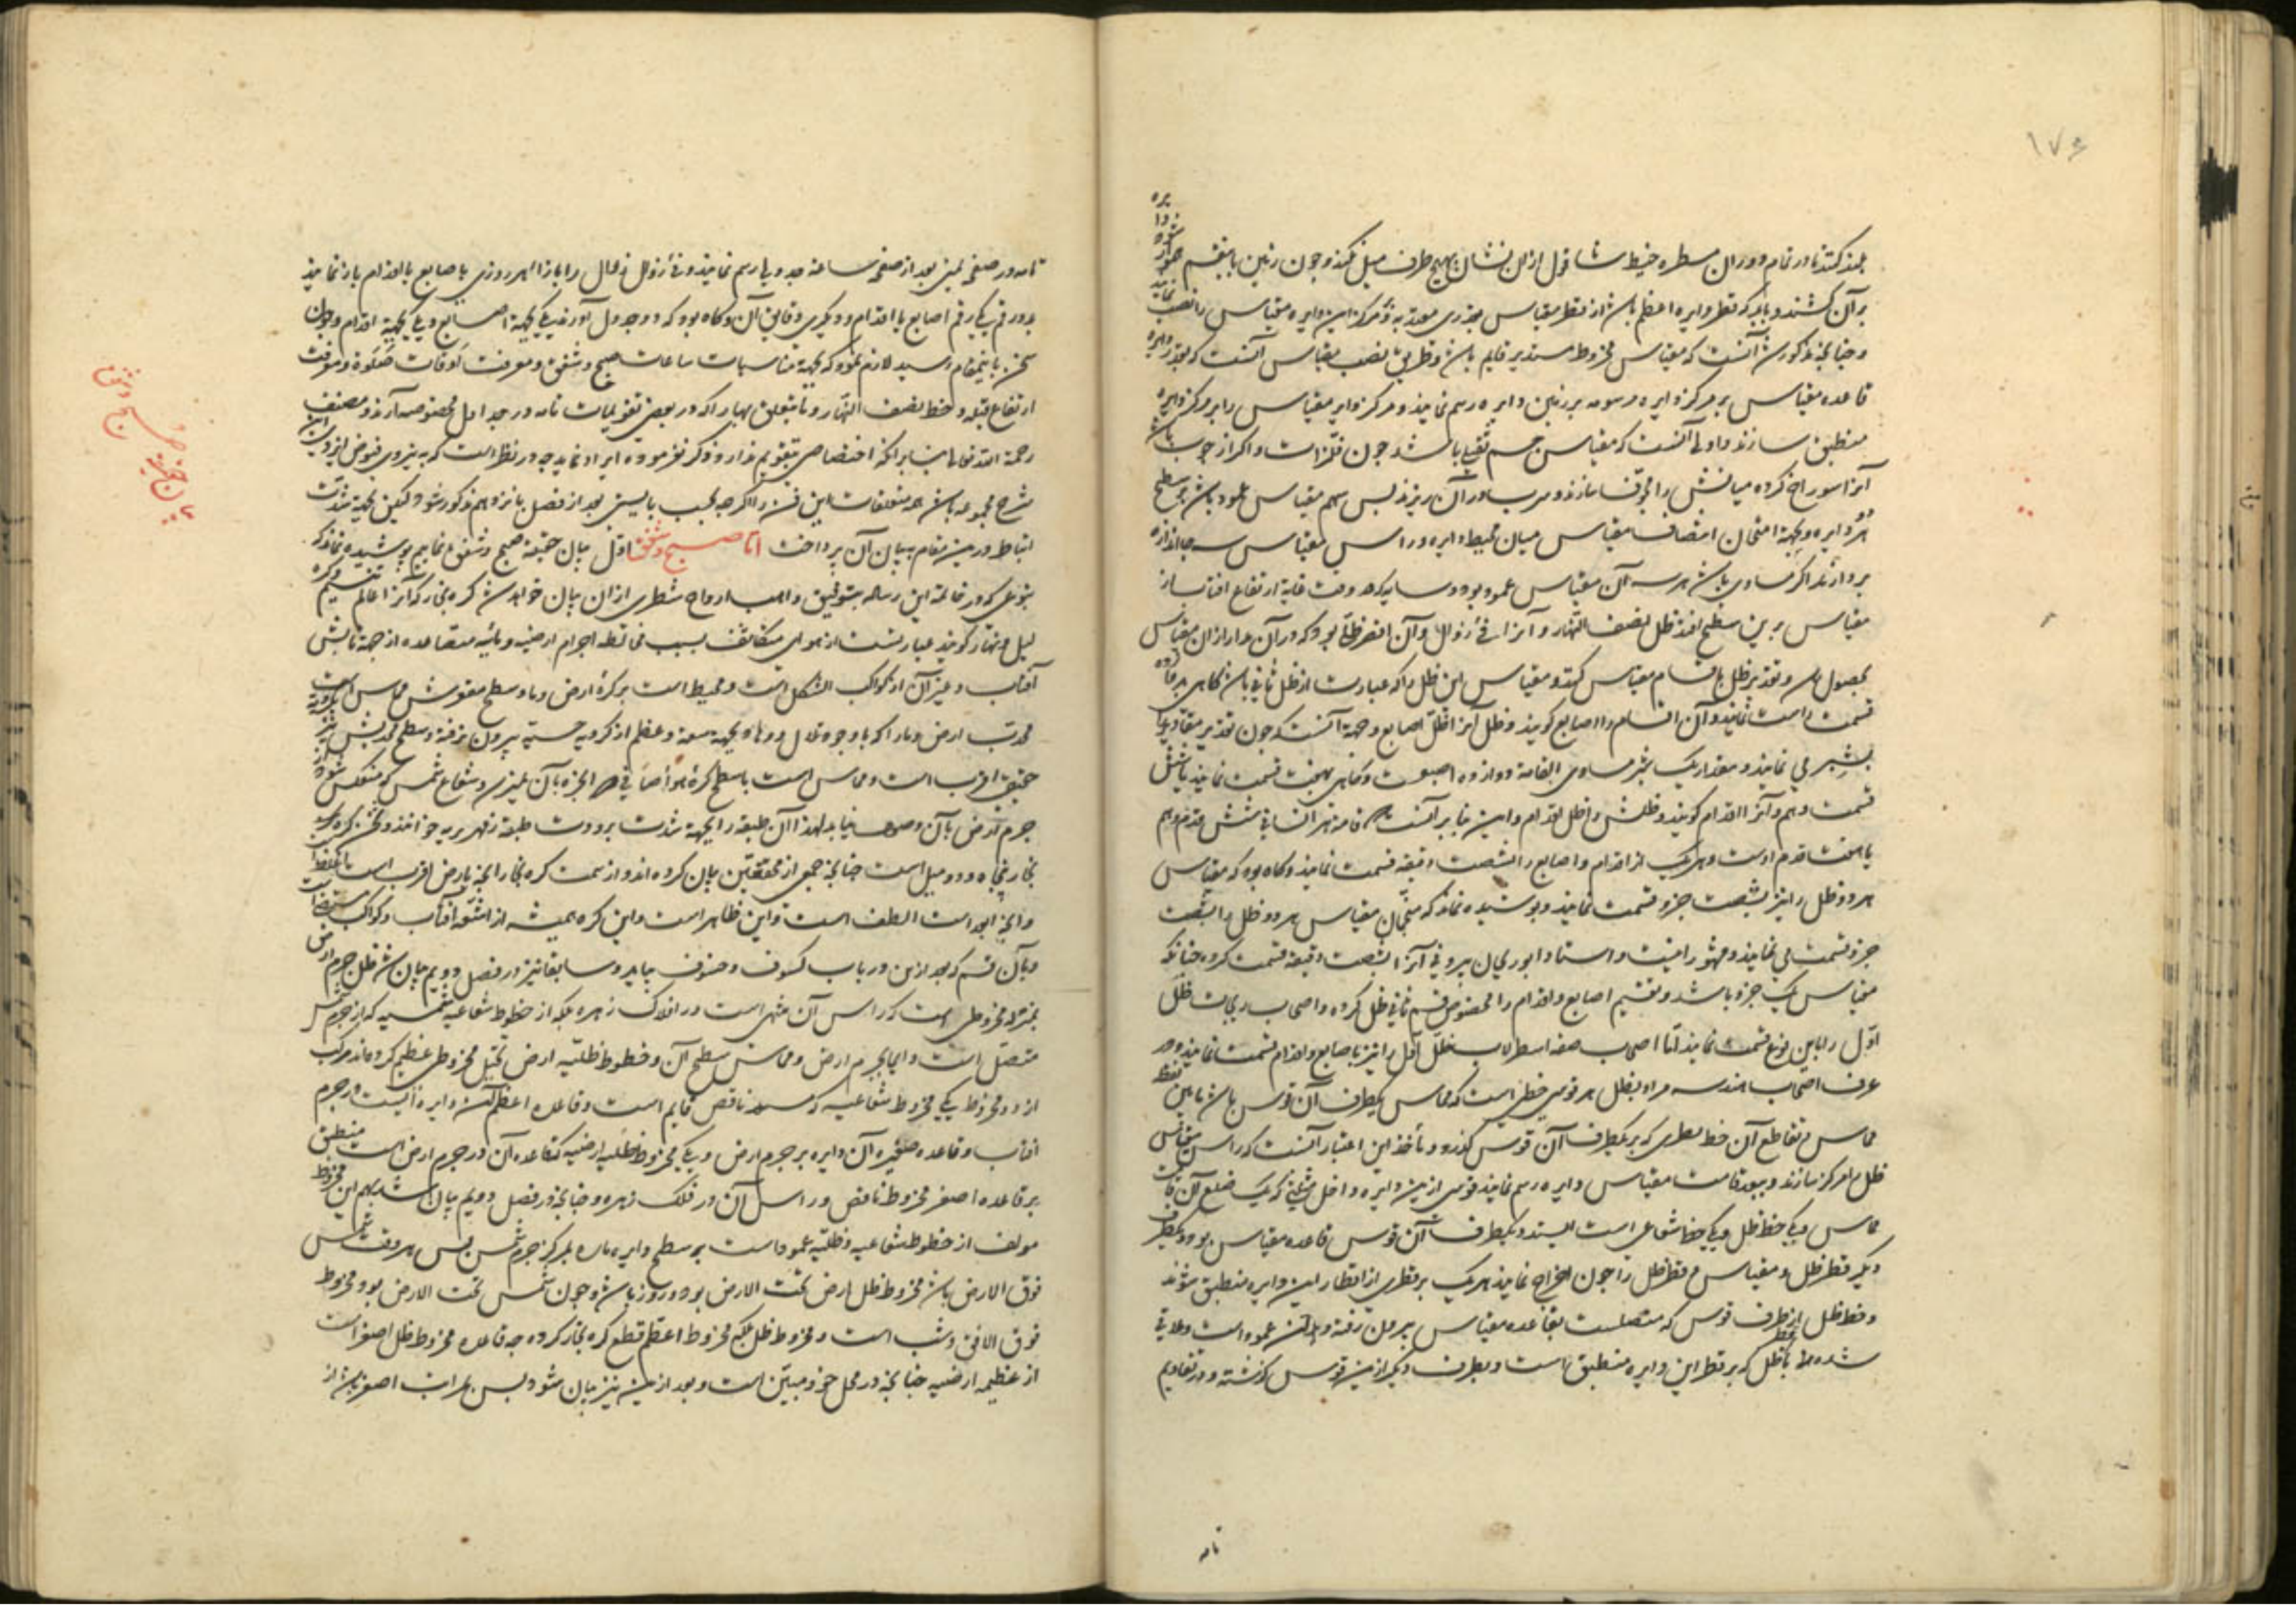 ۱۷۶
بلند کنند تا در تمام دوران مسطره خیط شاقول ازان نشان بهیچ طرف میل نکند و چون زمین باینقسم هموار شود دایره
بر آن کشند و باید که قطر دایره اعظم باشد از قطر مقیاس بقدری معتد به و مرکز این دایره مقیاس را نصب نمایند
و چنانچه مذکور شد آنست که مقیاس مخروط مستدیر قایم باشد و طریق نصب مقیاس آنست که بقدر دایره
قاعده مقیاس بر مرکز دایره مرسومه بر زمین دایره رسم نمایند و مرکز دایر مقیاس را بر مرکز دایره
منطبق سازند و اولی آنست که مقیاس جسم ثقیل باشد چون فلزات و اگر از چوب باشد
آنرا سوراخ کرده میانش را مجوف سازند و سرب در آن ریزند پس سهم مقیاس عمود باشد بر سطح
هر دو دایره و بجهة امتحان انتصاف مقیاس میان محیط دایره و راس مقیاس سه جا اندازه
بردارند اگر مساوی باشد هر سه آن مقیاس عمود بود و سایه که در وقت غایة ارتفاع افتاب از
مقیاس برین سطح افتد ظل نصف النهار و آنرا فی زوال و آن اقصر ظلی بود که در آن مدار ازان مقیاس
بحصول رسد و تقدیر ظل باقسام مقیاس کنند و مقیاس این ظل را که عبارت از ظل ثانی باشد گاهی بدوازده
قسمت راست نمایند و آن اقسام را اصابع گویند و ظل آنرا ظل اصابع و جهة آنست که چون تقدیر مقادیر را
بشبر می نمایند و مقدار یک شبر مساوی القامة دوازده اصبعست و گاهی بهفت قسمت نمایند یا شش
قسمت و نیم و آنرا اقدام گویند و ظلش را ظل اقدام و این بنا بر آنست که قامة هر انسانی شش قدم و نیم
یا هفت قدم اوست و هر یک از اقدام و اصابع را بشصت دقیقه قسمت نمایند و گاه بود که مقیاس
هر دو ظل را نیز بشصت جزو قسمت نمایند و پوشیده نماند که منجمان مقیاس هر دو ظل را بشصت
جزو قسمت می نمایند و مشهور اینست و استاد ابوریحان بیرونی آنرا بشصت دقیقه قسمت کرده چنانکه
مقیاس یک جزو باشد و تقسیم اصابع و اقدام را مخصوص قسم ثانی ظل کرده و اصحاب زیجات ظل
اول را باین نوع قسمت نمایند اما اصحاب صنعه اسطرلاب ظل اول را نیز باصابع و اقدام قسمت نمایند و در
عرف اصحاب هندسه مراد بظل هر قوسی خطی است که مماس یکطرف آن قوس باشد ما بین نقطه
مماس و تقاطع آن خط بقطری که بر یکطرف آن قوس گذرد و مأخذ این اعتبار آنست که راس مقیاس
ظل را مرکز سازند و ببعد قامت مقیاس دایره رسم نمایند قوسی ازین دایره داخل مثلثی که یک ضلع آن قامت
مقیاس و یکی خط ظل و یکی خط شعاعی است افتد و یکطرف آن قوس قاعده مقیاس بود و یکطرف
دیگر قطر ظل و مقیاس و قطر ظل را چون اخراج نمایند هر یک بر قطری از اقطار این دایره منطبق شوند
و خط ظل از طرف قوس که متصلست بقاعده مقیاس بیرون رفته و بر آن عمود است و ملاقی
شده با خط ظل که بر قطر این دایره منطبق است و بطرف دیگر ازین قوس گذشته و در تقاویم
تامه
تامه در صفحه یمنی بعد از صفحه ساعة جدولی رسم نمایند و فی زوال را بازاء هر روزی باصابع یا اقدام باز نمایند
بدو رقم یکی رقم اصابع یا اقدام و دیگری دقایق آن و گاه بود که دو جدول آورند یکی بجهة اصابع و یکی بجهة اقدام و چون
سخن باینمقام رسید لازم نمود که بجهة مناسبات ساعات صبح و شفق و معرفت اوقات صلوة و معرفت
ارتفاع قبله و خط نصف النهار و ما یتعلق بها را که در بعضی تقویمات تامه در جداول مخصوصه آرند و مصنف
رحمة الله تعالی بنا بر آنکه اختصاصی بتقویم ندارد ذکر نفرموده ایراد نماید چه در نظر است که به نیروی فیوض ایزدی این
شرح مجموعه باشد همه متعلقات این فن را اگر چه بحسب بایستی بعد از فصل پانزدهم مذکور شود لیکن بجهة شدت
ارتباط درین مقام ببیان آن پرداخت اما صبح و شفق اول بیان حقیقة صبح و شفق نماییم پوشیده نماند که
بنوعی که در خاتمة این رساله بتوفیق واهب ارواح شطری ازان بیان خواهد شد کره بخار که آنرا عالم نسیم و کره
لیل و نهار گویند عبارتست از هوای متکاثف بسبب مخالطه اجرام ارضیه و مائیه متصاعده از جهة تابش
آفتاب و غیر آن از کواکب الشکل است و محیط است بر کره ارض و ما و سطح مقعرش مماس است
محدب ارض و ما را که با وجود تلال و وهاد بجهة سعة و عظم از کرویه حسیه بیرون نرفته و سطح محدبش نیز بکرویه
حقیقی اقرب است و مماس است با سطح کره هوا صافی و الجزء بآن نمیرسد و شعاع شمس که منعکس شود از
جرم ارض بآن وصول نیابد لهذا آن طبقه را بجهة شدت برودت طبقه زمهریریه خوانند و ثخن کره
بخار پنجاه و دو میل است چنانچه جمعی از محققین بیان کرده اند و از سمت کره بخار آنچه بارض اقرب است اغلظ است
و آنچه ابعد است الطف است و این ظاهر است و این کره همیشه از اشعه افتاب و کواکب مستضی است
و بآن قسم که بعد ازین در باب کسوف و خسوف بیاید و سابقا نیز در فصل دویم بیان شد ظل جرم ارض
بمنزله مخروطی است که راس آن منتهی است در افلاک زهره بلکه از خطوط شعاعیه شمسیه که از جرم شمس
متصل است و ایما بجرم ارض و مماس سطح آن و خطوط ظلیه ارض تخیل مخروطی عظیم کرده اند مرکب
از دو مخروط یکی مخروط شعاعیه که مستدیر ناقص قایم است و قاعده اعظم آن دایره ایست در جرم
افتاب و قاعده صغیره آن دایره بر جرم ارض و یکی مخروط ظلیه ارضیه که قاعده آن در جرم ارض است منطبق
بر قاعده اصغر مخروط ناقص و راس آن در فلک زهره و چنانچه در فصل دویم بیان شد سهم این مخروط
مولف از خطوط شعاعیه و ظلیه عمود است بر سطح دایره ماره بمرکز جرم شمس پس هر وقت شمس
فوق الارض باشد مخروط ظل ارض تحت الارض بود و روز باشد و چون شمس تحت الارض بود مخروط
فوق الافق و شب است و مخروط ظل بلکه مخروط اعظم قطع کره بخار کرده چه قاعده مخروط ظل اصغر است
از عظیمه ارضیه چنانچه در محل خود مبین است و بعد ازین نیز بیان شود پس بمراتب اصغر باشد از
بیان صبح و شفق